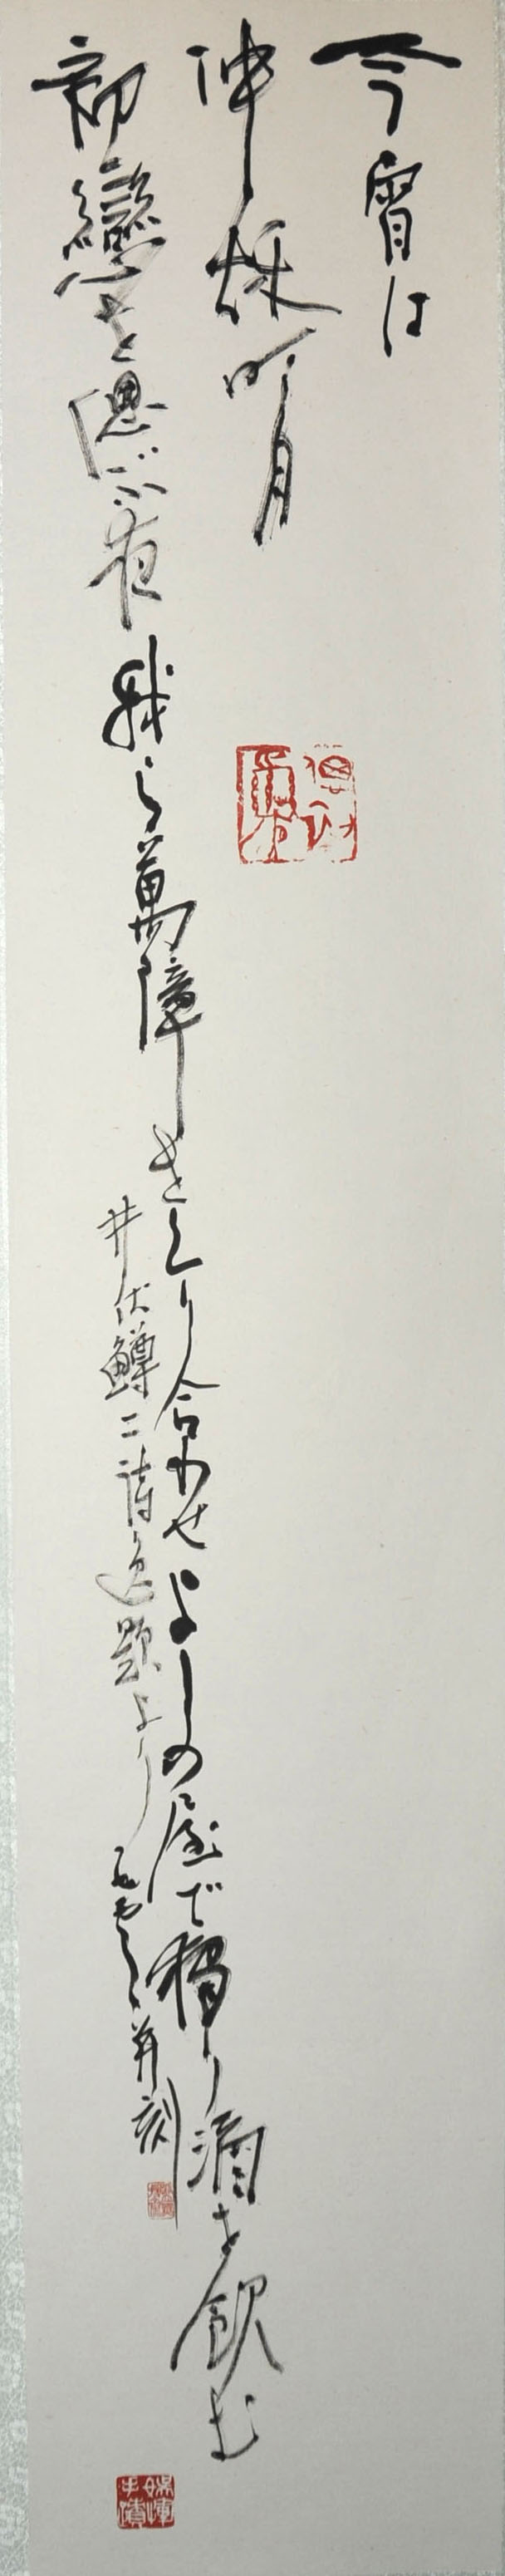 今宵は
仲秋明月
初戀を偲ぶ夜我ら萬障をくり合わせよしの屋で獨り酒を飲む
井伏鱒二詩逸題より 并刻